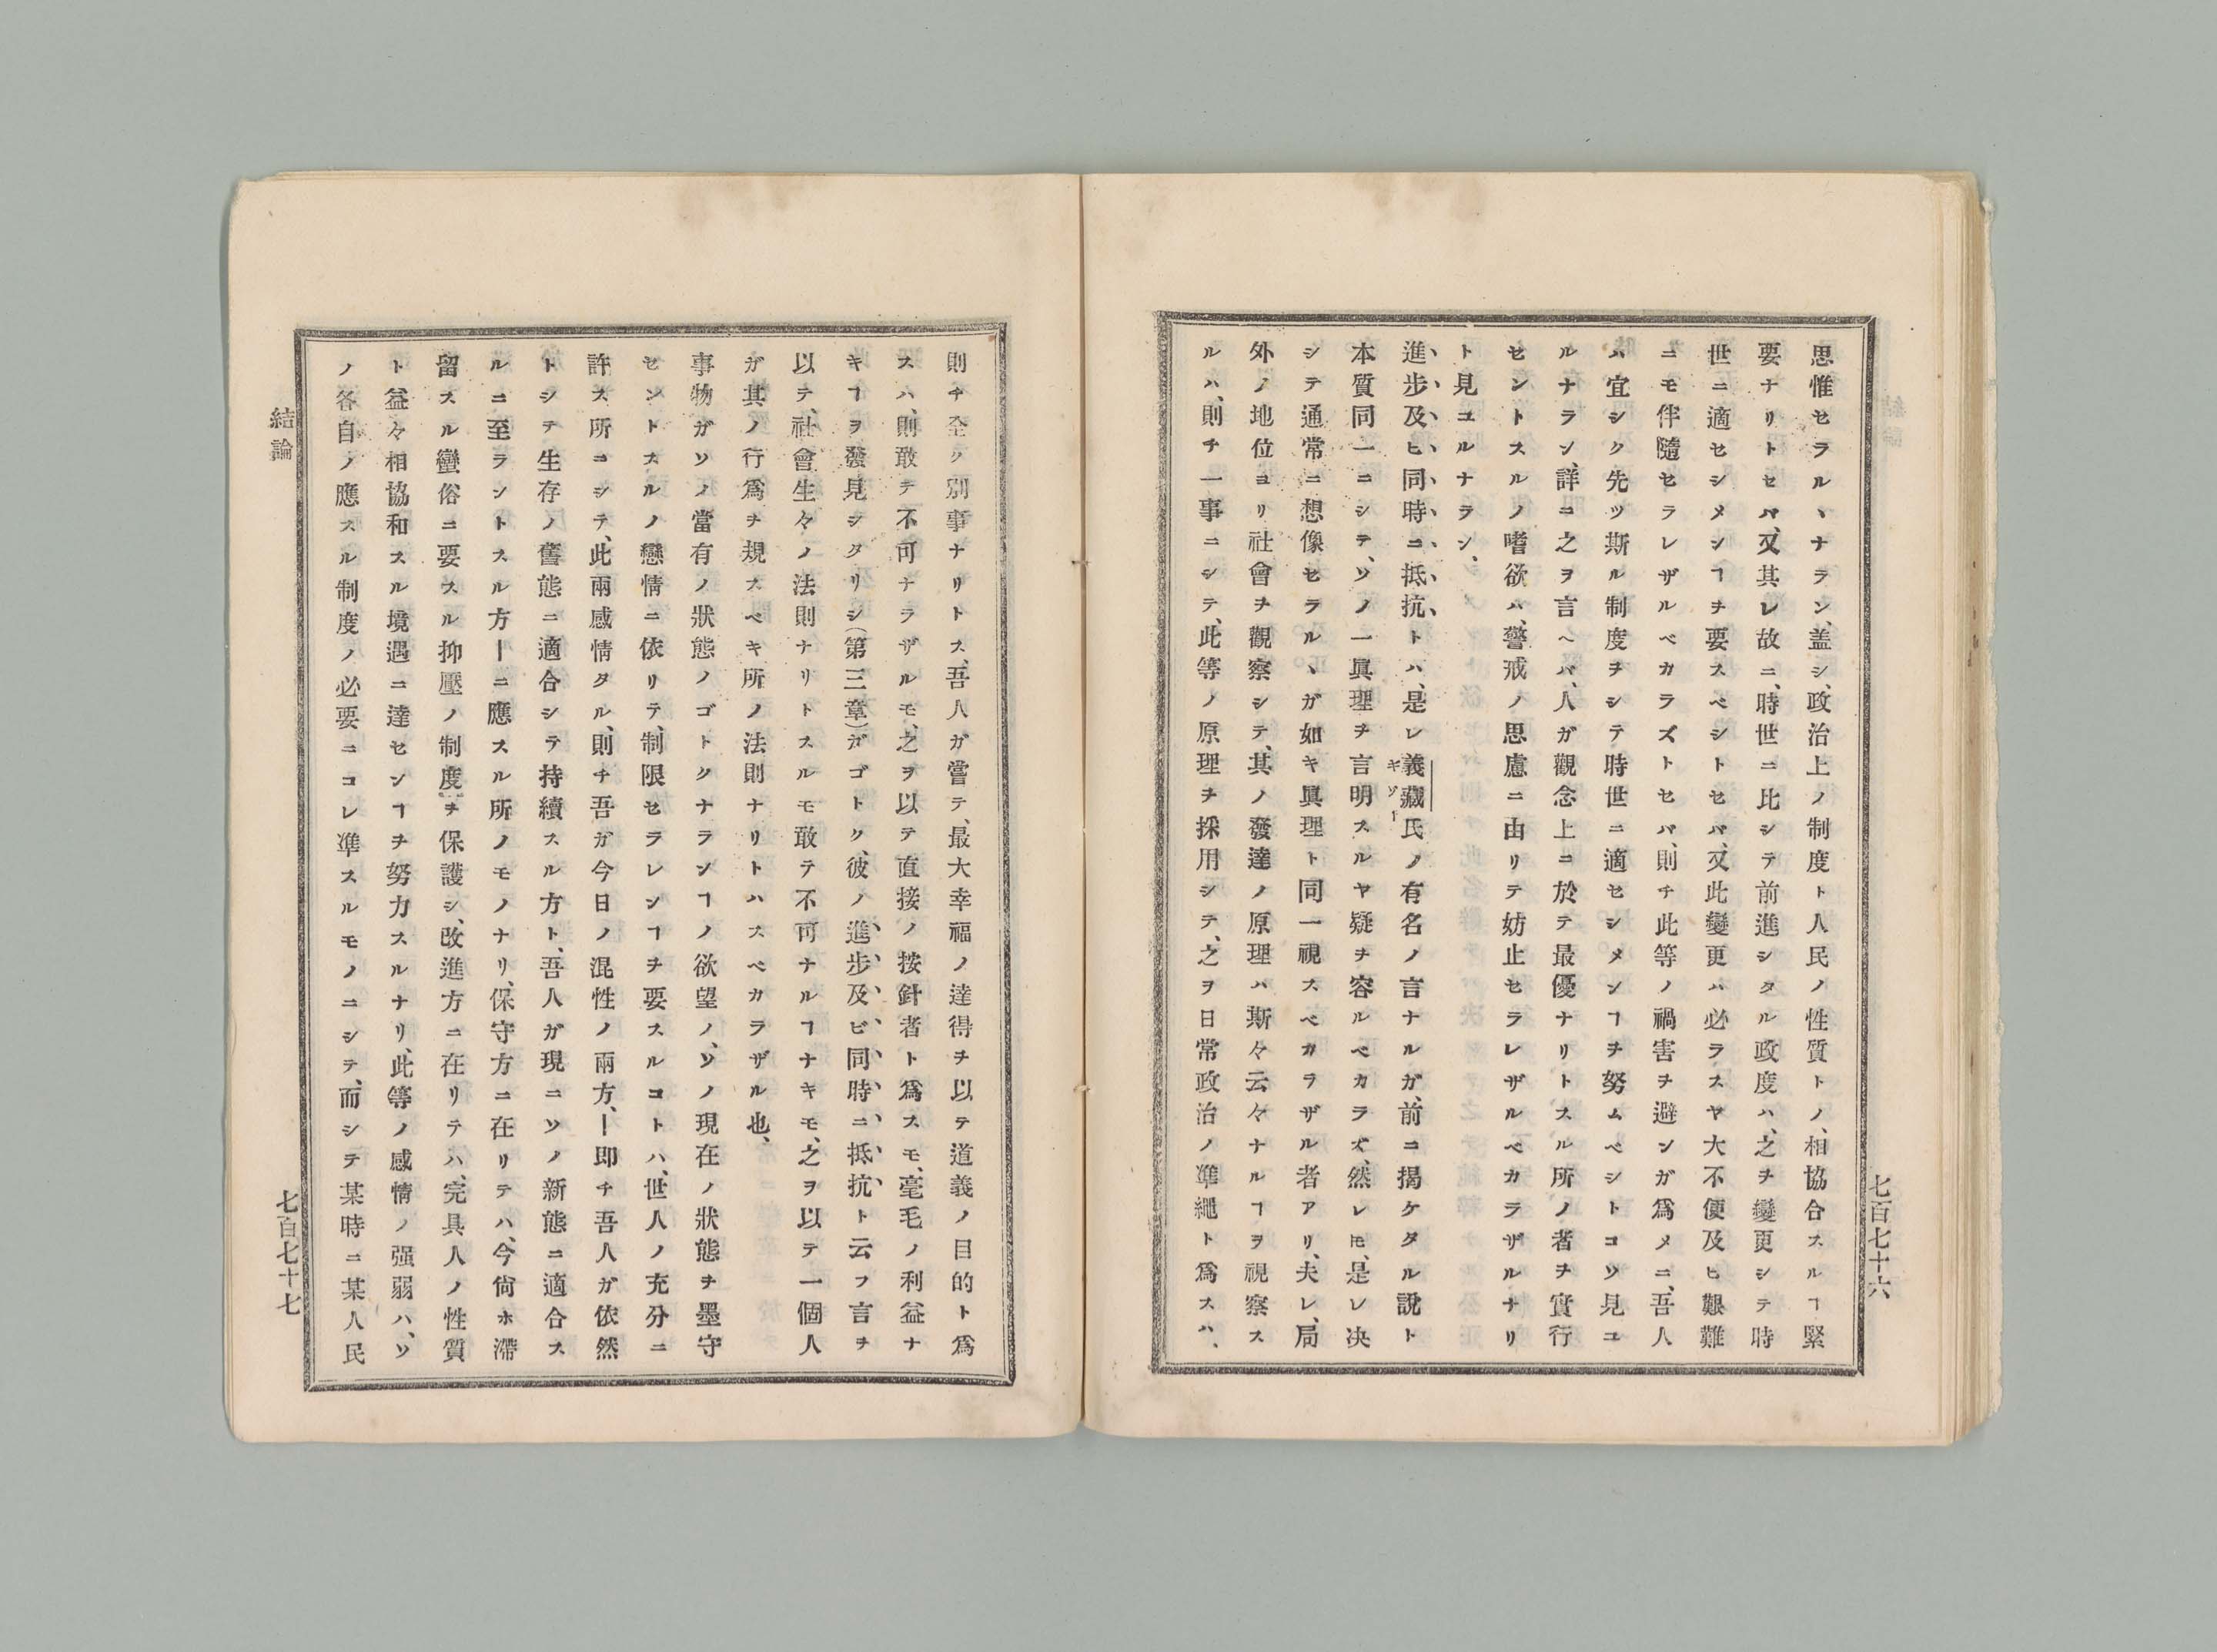 思惟セラルヽナラン、盖シ、政治上ノ制度ト人民ノ性質トノ、相協合スルヿ緊
要ナリトセバ、又其レ故ニ、時世ニ比シテ前進シタル政度ハ、之ヲ變更シテ時
世ニ適セシメンヿヲ要スベシトセバ、又此變更ハ必ラスヤ大不便及ヒ艱難
ニモ伴隨セラレザルベカラズトセバ、則チ此等ノ禍害ヲ避ンガ爲メニ、吾人
ハ宜シク先ツ斯ル制度ヲシテ時世ニ適セシメンヿヲ努ムベシトコソ見ユ
ルナラン、詳ニ之ヲ言ヘバ、人ガ觀念上ニ於テ最優ナリトスル所ノ者ヲ實行
セントスルノ嗜欲ハ、警戒ノ思慮ニ由リテ妨止セラレザルベカラザルナリ
ト見ユルナラン、
進步及ヒ同時ニ抵抗トハ、是レ義藏氏ノ有名ノ言ナルガ、前ニ揭ケタル說ト
ギゾー
本質同一ニシテ、ソノ一眞理ヲ言明スルヤ疑ヲ容ルベカラズ、然レㇳモ、是レ决
シテ通常ニ想像セラルヽガ如キ眞理ト同一視スベカラザル者アリ、夫レ、局
外ノ地位ヨリ社會ヲ觀察シテ、其ノ發達ノ原理ハ斯々云々ナルヿヲ視察ス
ルハ、則チ一事ニシテ、此等ノ原理ヲ採用シテ、之ヲ日常政治ノ凖繩ト爲スハ、
七百七十六
則チ全ク別事ナリトス、吾人ガ嘗テ、最大幸福ノ達得ヲ以テ道義ノ目的ト爲
スハ、則敢テ不可ナラザルモ、之ヲ以テ直接ノ按針者ト爲スモ、毫毛ノ利益ナ
キヿヲ發見シタリシ(第三章)ガゴトク、彼ノ進步及ビ同時ニ抵抗ト云フ言ヲ
以テ、社會生々ノ法則ナリトスルモ敢テ不可ナルヿナキモ、之ヲ以テ一個人
ガ其ノ行爲ヲ規スベキ所ノ法則ナリトハスベカラザル也、
事物ガソノ當有ノ狀態ノゴトクナランヿノ欲望ノ、ソノ現在ノ狀態ヲ墨守
セントスルノ戀情ニ依リテ、制限セラレンヿヲ要スルコトハ、世人ノ充分ニ
許ス所ニシテ、此兩感情タル、則チ吾ガ今日ノ混性ノ兩方、ー即チ吾人ガ依然
トシテ生存ノ舊態ニ適合シテ持續スル方ト、吾人ガ現ニソノ新態ニ適合ス
ルニ至ラントスル方ーニ應スル所ノモノナリ、保守方ニ在リテハ、今尙ホ滯
留スル蠻俗ニ要スル抑壓ノ制度ヲ保護シ、改進方ニ在リテハ、完具人ノ性質
ト益々相協和スル境遇ニ達センヿヲ努力スルナリ、此等ノ感情ノ强弱ハ、ソ
ノ各自ノ應スル制度ノ必要ニコレ凖スルモノニシテ、而シテ某時ニ某人民
結論
七百七十七